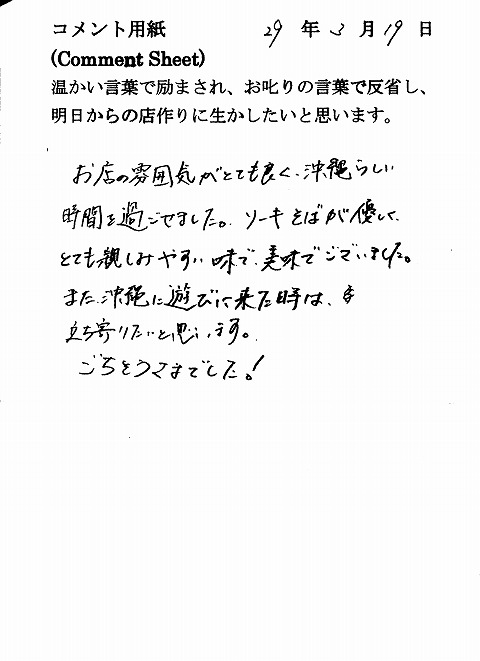 コメント用紙 29 年 3 月 19 日
(Comment Sheet)
温かい言葉で励まされ、お叱りの言葉で反省し、
明日からの店作りに生かしたいと思います。
お店の雰囲気がとても良く、沖縄らしい
時間を過ごせました。ソーキそばが優しく、
とても親しみやすい味で、美味でございました。
また沖縄に遊びに来た時は、
立ち寄りたいと思います。
ごちそうさまでした!